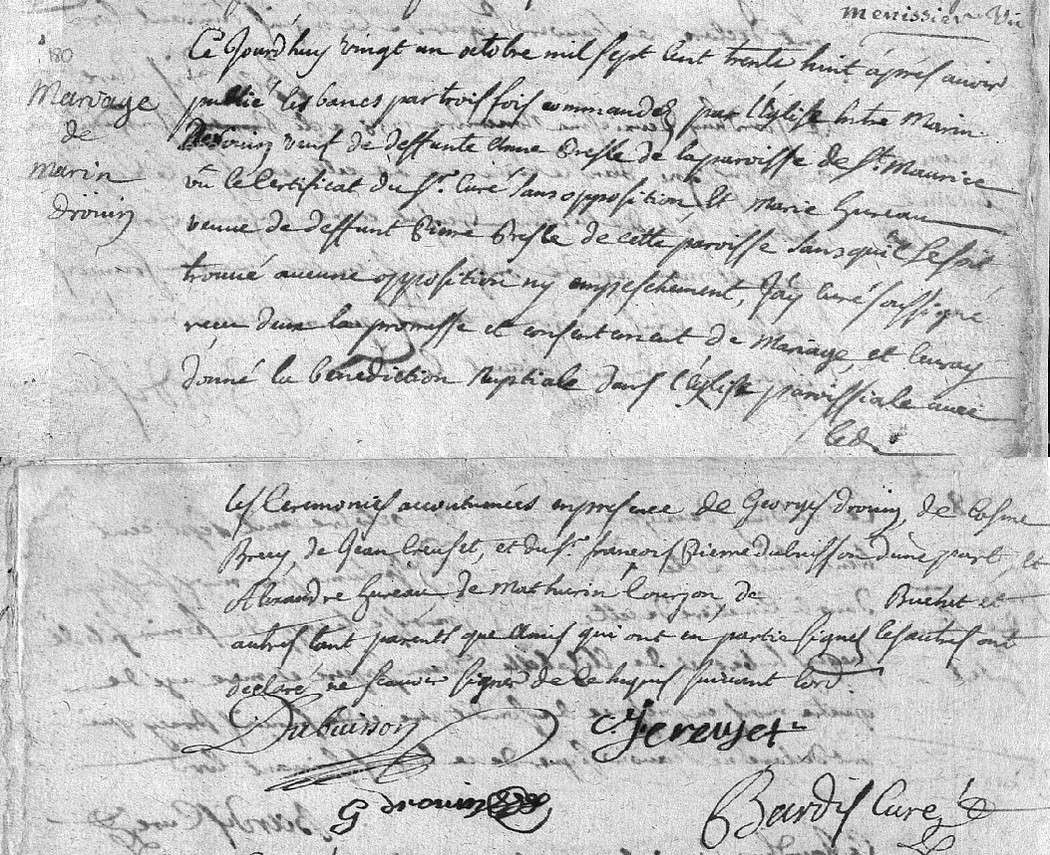 menissier
Ce Jourdhuy vingt un octobre mil sept Cent trente huit après avoir
publié les bancs par trois fois commandez par L'Eglise Entre Marin
Drouin veuf de deffunte Anne Presle de la paroisse de St. Maurice
vû le Certificat du Sr. Curé sans opposition, Et Marie hureau
veuve de deffunt Pierre Presle de cette paroisse sans qu'il se soit
trouvé aucune opposition ny empeschement, J'ay Curé soussigné
receu deux la promesse et consentement de Mariage, et leur ay
donné la benediction Nuptiale dans l'église paroissiale avec
led
Mariage
de
marin
drouin
les Ceremonies accoutumées en presence de Georges drouin, de Cosme
Brecy, de Jean Creuset, et du Sr. françois Pierre dubuisson d'une part, Et
Alexandre hureau de Mathurin Courjon, de Buchet et
autres tant parents que Amis qui ont en partie signes les autres ont
declaré ne scavoir signer de ce requis suivant lord.
Dubuisson
C. J creuset
G drouin
Bardis Curé